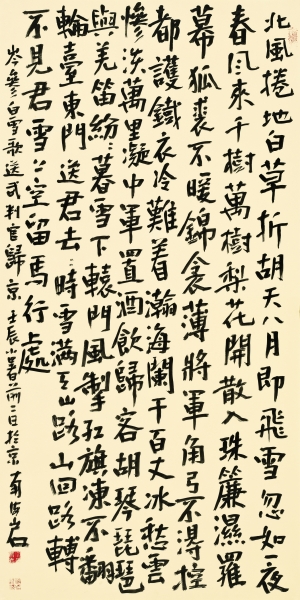 北風捲地白草折胡天八月即飛雪忽如一夜
春風來千樹萬樹梨花開散入珠簾濕羅
幕狐裘不暖錦衾薄將軍角弓不得控
都護鐵衣冷難着瀚海闌干百丈冰愁雲
慘淡萬里凝中軍置酒飲歸客胡琴琵琶
與羌笛紛々暮雪下轅門風掣紅旗凍不翻
輪臺東門送君去々時雪滿天山路山回路轉
不見君雪上空留馬行處
岑參白雪歌送武判官歸京壬辰小暑前二日於京